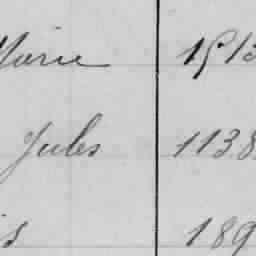 Marie 1513
Jules 1138
is 189